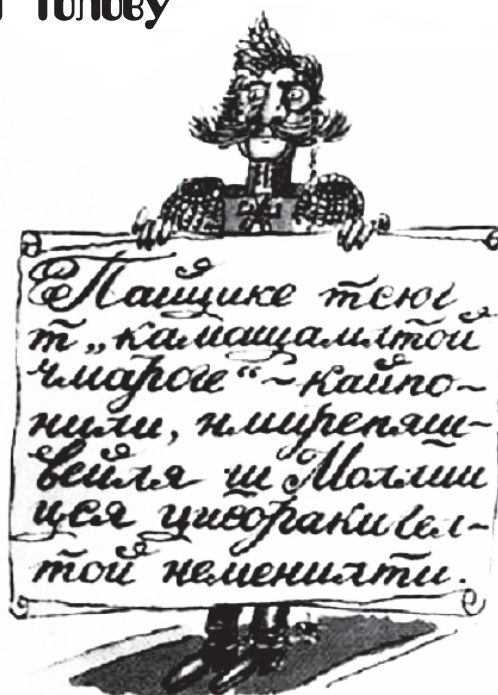 голову
Пайцике тсюг
т „камащамлтой
чмароке“ – кайпо-
нили, нмирепяш-
вейля ш Моллии
цся цисоракигел-
той неменилти.